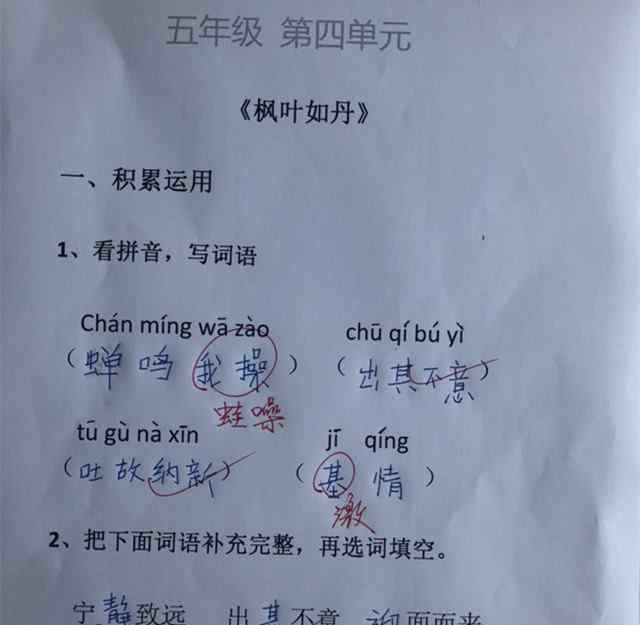 五年级 第四单元
《枫叶如丹》
一、积累运用
1、看拼音，写词语
Chán míng wā zào chū qí bú yì
（蝉 鸣 我 操） （出其不意）
蛙噪
tū gù nà xīn jī qíng
（吐故纳新） （基 情）
激
2、把下面词语补充完整，再选词填空。
宁静致远 出其不意 迎面而来